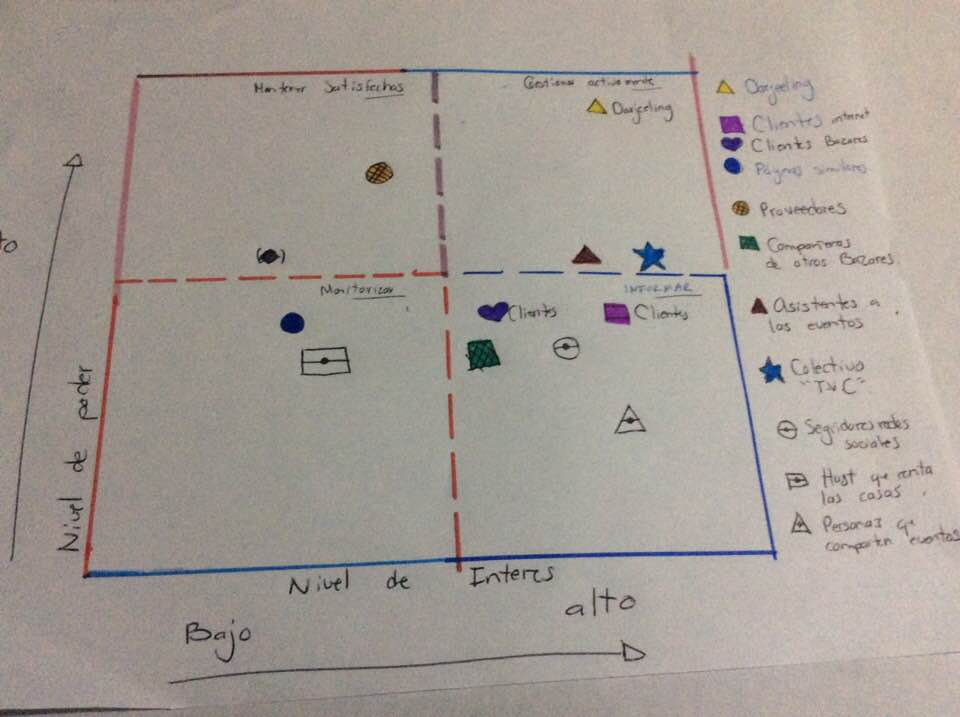 Mantener Satisfechos
Gestionar activamente
Darjeeling
to
Monitorizar
INFORMAR
Clientes
Clientes
Nivel de poder
Nivel de Interes
Bajo
alto
Darjeeling
Clientes internet
Clientes Bazares
Páginas similares
Proveedores
Compañeros
de otros Bazares
Asistentes a
los eventos
Colectivo
"TVC"
Seguidores redes
sociales
Host que renta
las casas
Personas que
comparten eventos